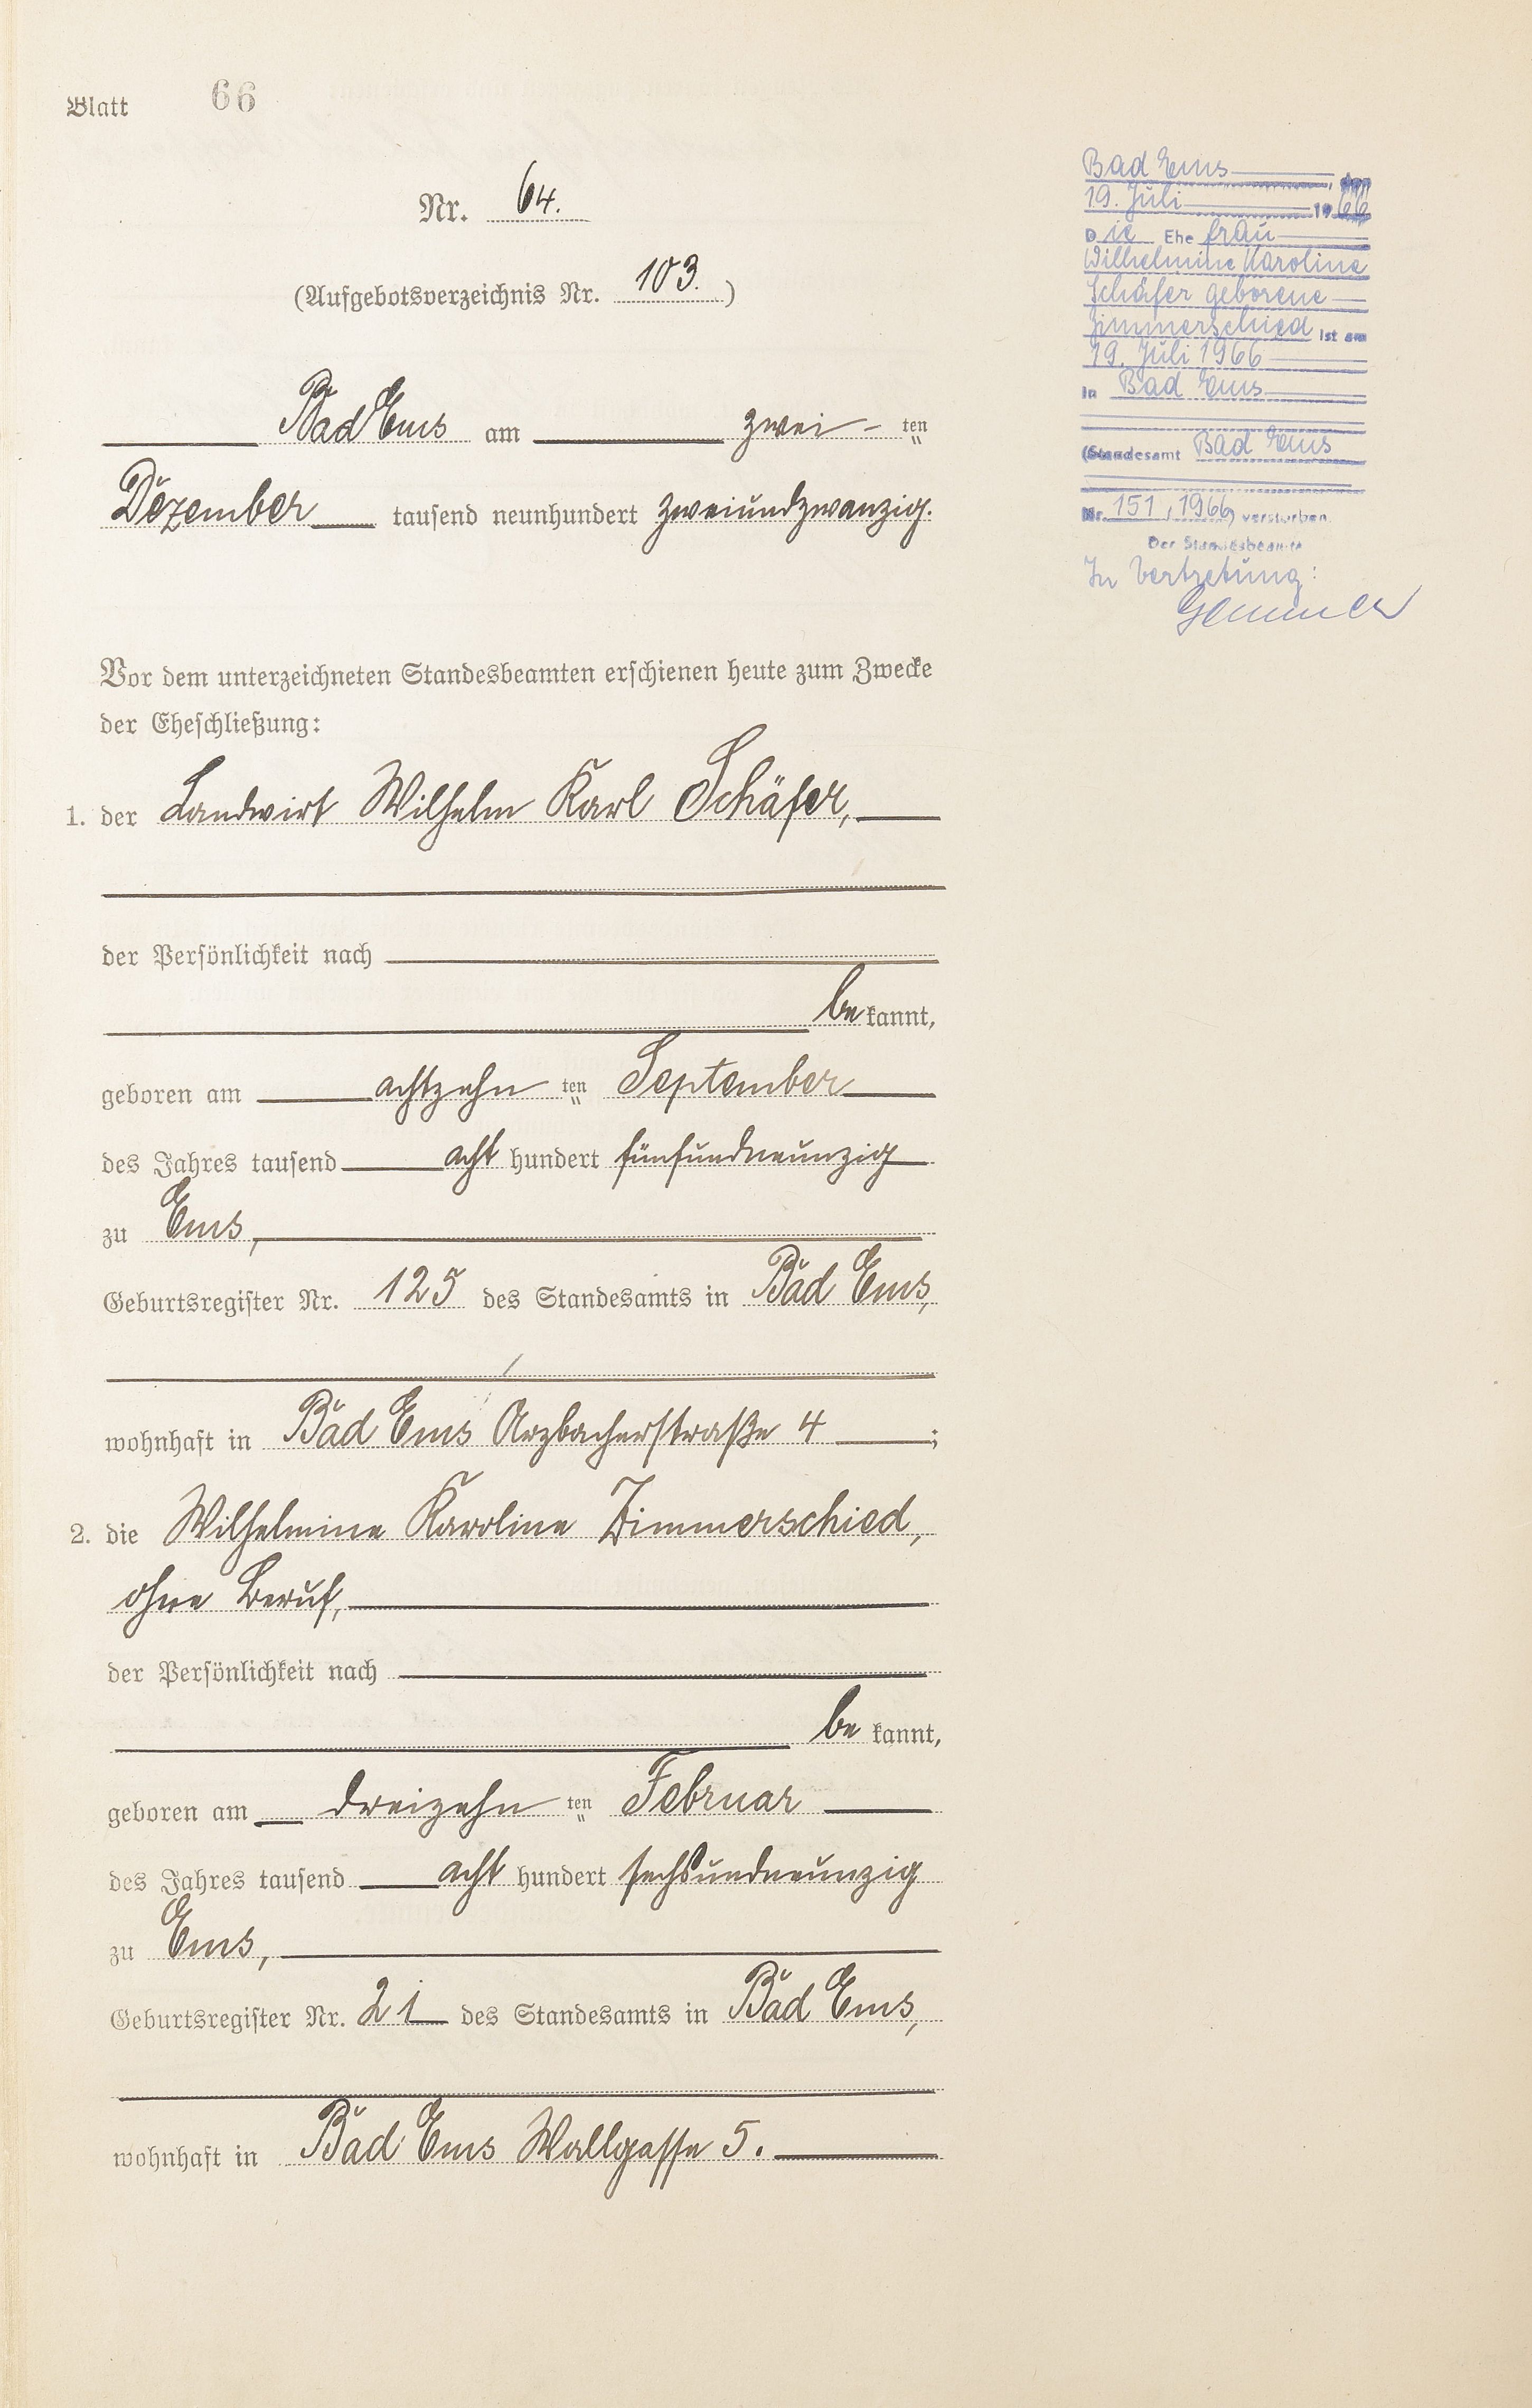 Blatt 66
Nr. 64.
(Aufgebotsverzeichnis Nr. 103.)
Bad Ems am zwei-ten
Dezember tausend neunhundert zweiundzwanzig.
Vor dem unterzeichneten Standesbeamten erschienen heute zum Zwecke
der Eheschließung:
1. der Landwirt Wilhelm Karl Schäfer,
der Persönlichkeit nach
bekannt,
geboren am achtzehnten September
des Jahres tausend acht hundert fünfundneunzig
zu Ems,
Geburtsregister Nr. 125 des Standesamts in Bad Ems,
wohnhaft in Bad Ems Arzbacherstraße 4 ;
2. die Wilhelmine Karoline Zimmerschied,
ohne Beruf,
der Persönlichkeit nach
bekannt,
geboren am dreizehnten Februar
des Jahres tausend acht hundert sechsundneunzig
zu Ems,
Geburtsregister Nr. 21 des Standesamts in Bad Ems,
wohnhaft in Bad Ems Wallgasse 5.
Bad Ems, den
19. Juli 1966
Die Ehefrau
Wilhelmine Karoline
Schäfer geborene
Zimmerschied ist am
19. Juli 1966
in Bad Ems
(Standesamt Bad Ems
Nr. 151/1966) verstorben.
Der Standesbeamte
In Vertretung: